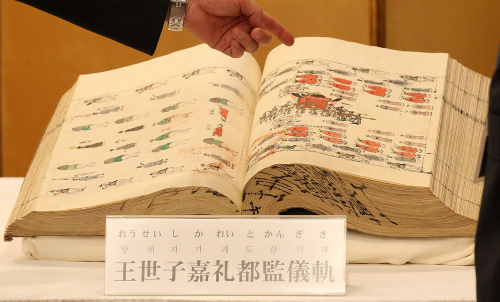 おうせいし か れい と かん ぎ き
왕 세 자 가 례 도 감 의 궤
王世子嘉礼都監儀軌